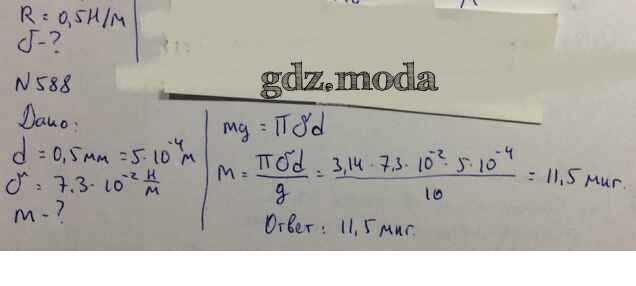 R = 0,5 Н/м
σ - ?
gdz.moda
N 588
Дано:
d = 0,5 мм = 5 · 10⁻⁴ м
σ = 7.3 · 10⁻² Н/м
m - ?
mg = πσd
m = πσd/g = 3,14 · 7,3 · 10⁻² · 5 · 10⁻⁴/10 = 11,5 мкг.
Ответ: 11,5 мкг.